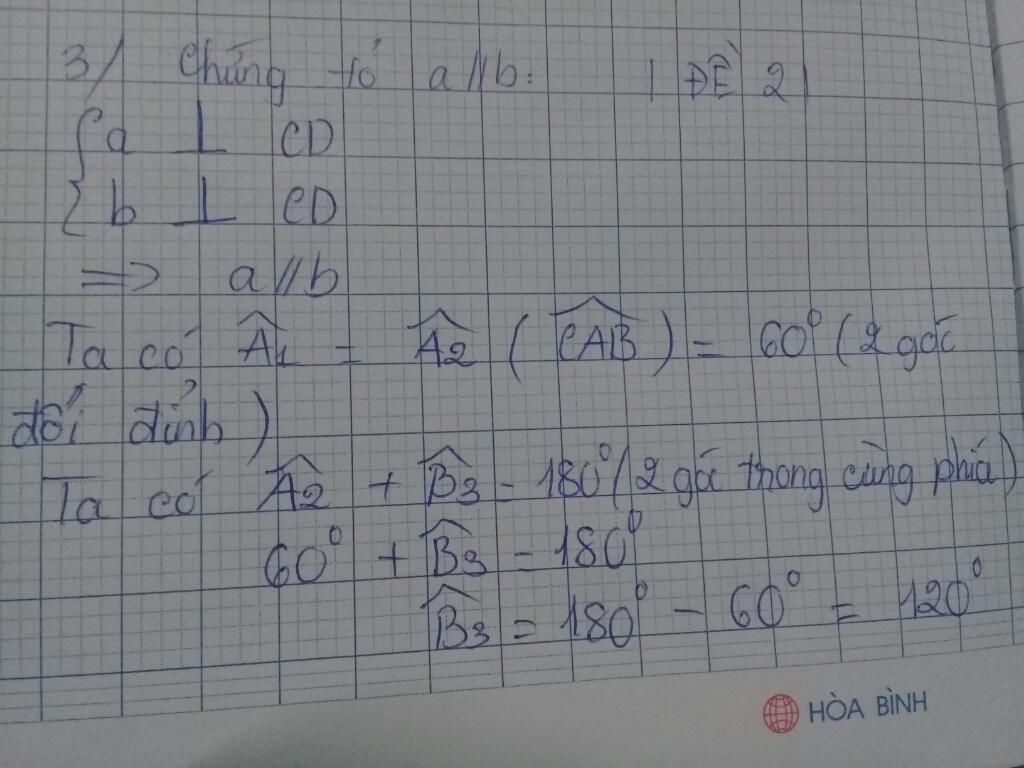 3/ Chứng tỏ a//b: | ĐỀ 2|
{ a ⊥ CD
{ b ⊥ CD
=> a//b
Ta có Â1 = Â2 (CAB^) = 60° (2 góc
đối đỉnh)
Ta có Â2 + B̂3 = 180° (2 góc trong cùng phía)
60° + B̂3 = 180°
B̂3 = 180° - 60° = 120°
HÒA BÌNH